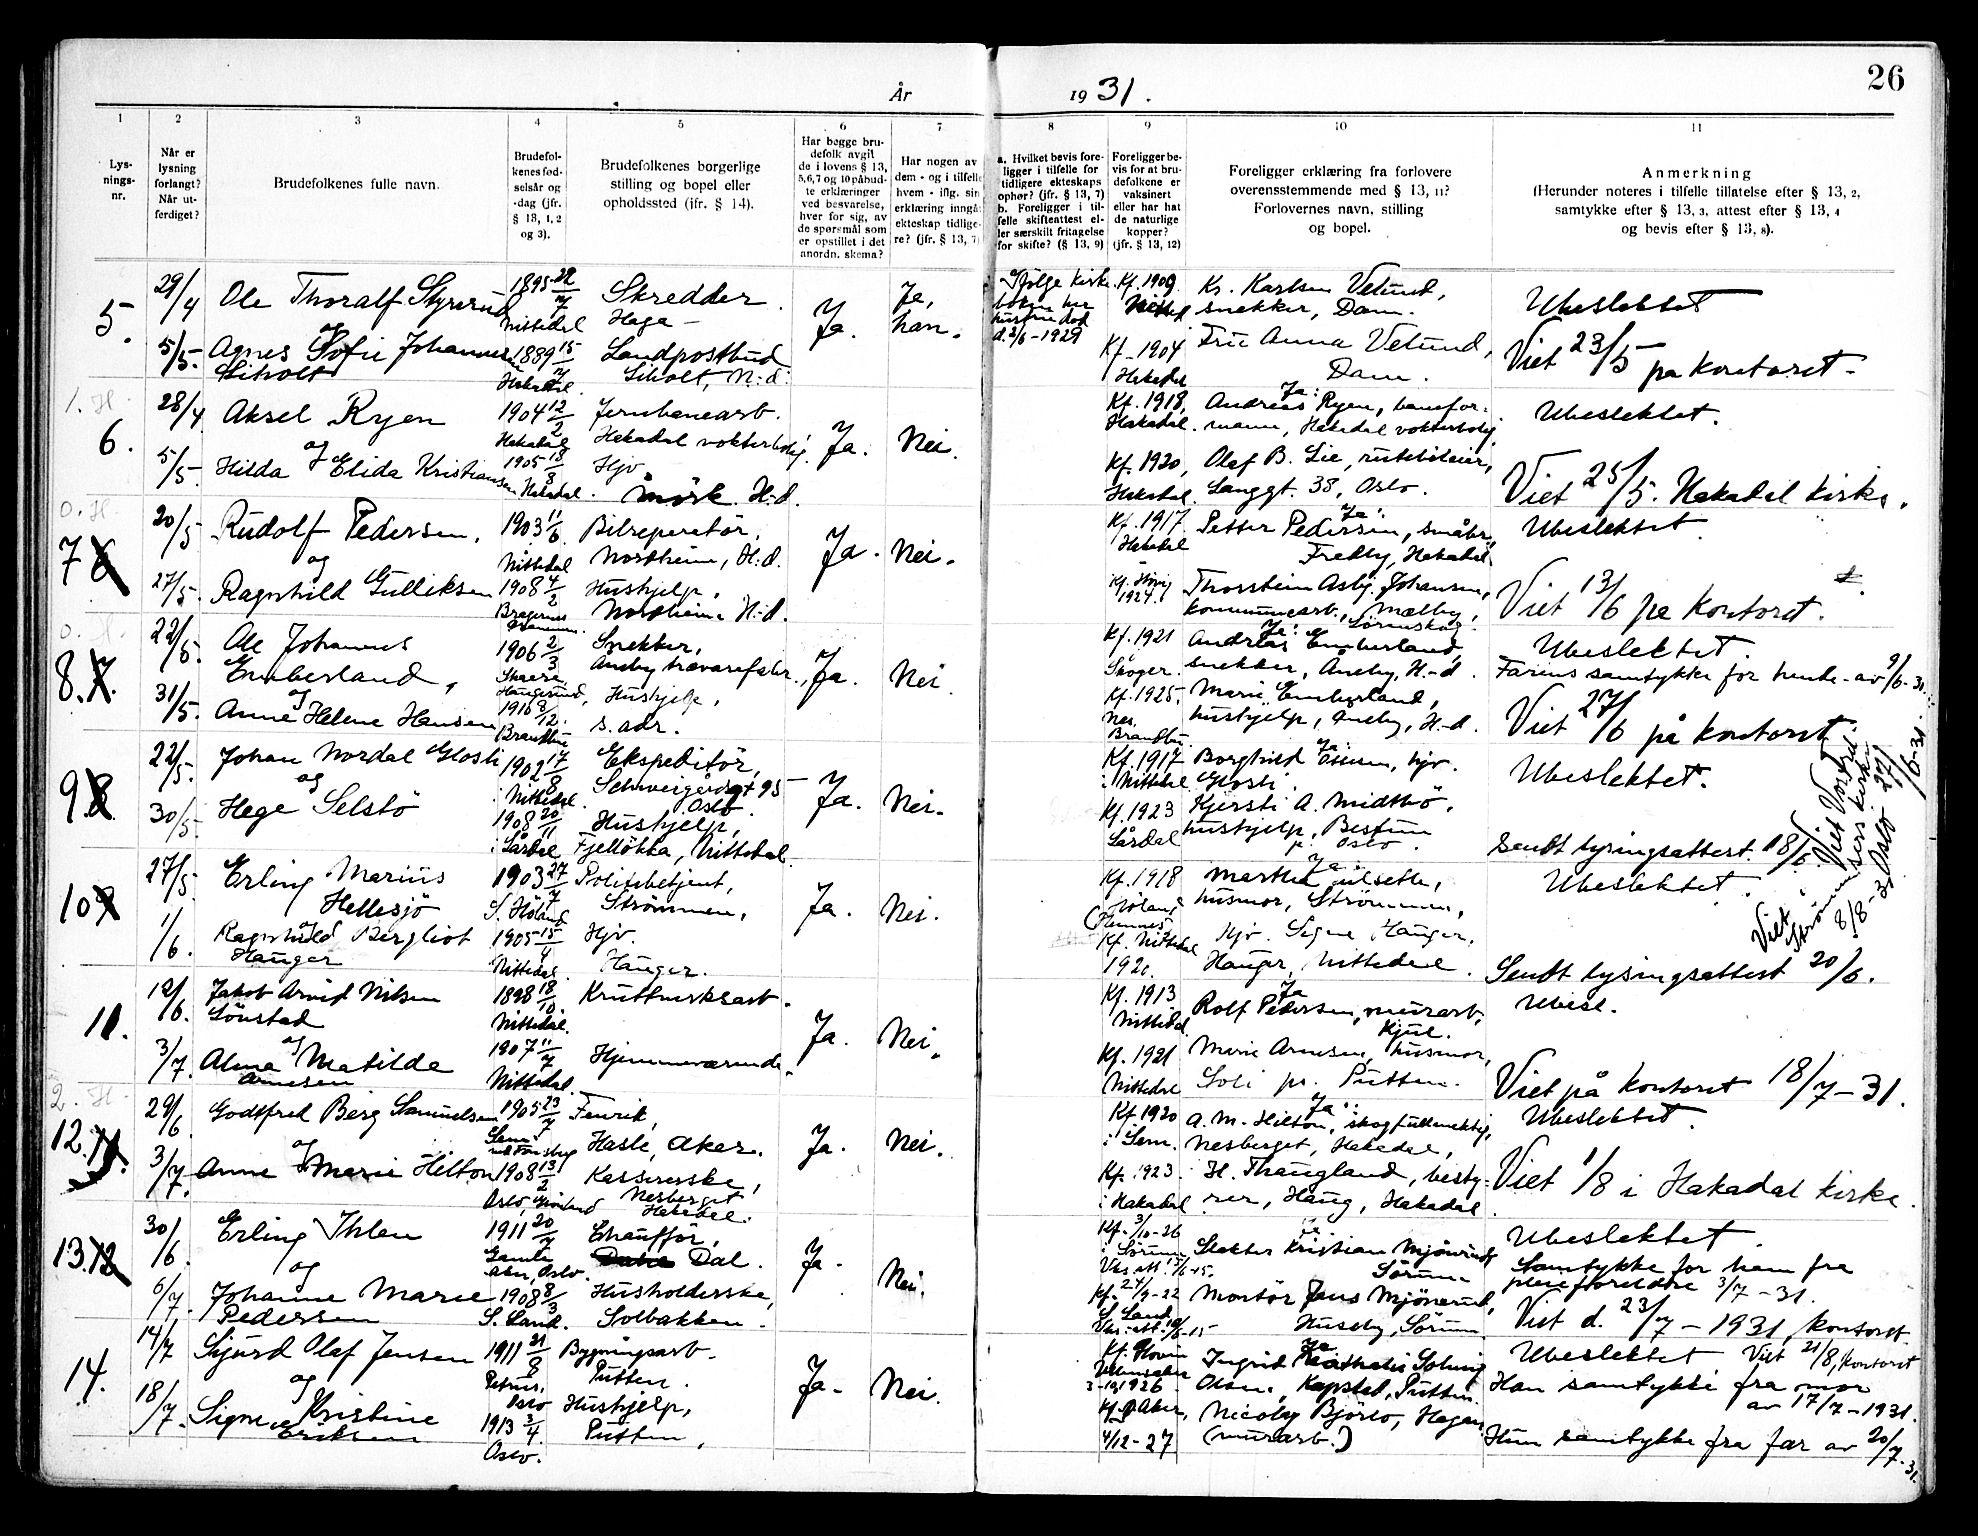 År 1931.
26
1 2 3 4 5 6 7 8 9 10 11
Lysningsnr.
Når er lysning forlangt? Når utferdiget?
Brudefolkenes fulle navn.
Brudefolkenes fødselsår og -dag (jfr. § 13, 1, 2 og 3).
Brudefolkenes borgerlige stilling og bopel eller opholdssted (jfr. § 14).
Har begge brudefolk avgit de i lovens § 13, 5,6,7 og 10 påbudte erklæringer ved besvarelse, hver for sig, av de spørsmål som er opstillet i det anordn. skema?
Har nogen av dem - og i tilfelle hvem - iflg. sin erklæring inngå ekteskap tidligere? (jfr. § 13, 7)
a. Hvilket bevis foreligger i tilfelle for tidligere ekteskaps ophør? (jfr. § 13, 7)
b. Foreligger i tilfelle skifteattest eller særskilt fritagelse for skifte? (§ 13, 9)
Foreligger bevis for at brudefolkene er vaksinert eller har hat de naturlige kopper? (jfr. § 13, 12)
Foreligger erklæring fra forlovere overensstemmende med § 13, 11? Forlovernes navn, stilling og bopel.
Anmerkning
(Herunder noteres i tilfelle tillatelse efter § 13, 2, samtykke efter § 13, 3, attest efter § 13, 4 og bevis efter § 13, 8).
5.
29/4 5/5.
Ole Thoralf
og
Agnes Sofie
1895 Nittedal
1889 15/ Hakadal
Skredder
Haga
Landpostbud
Ja.
Ja, han.
Ifølge kirkeboken
hustru død
Kf. 1909
Kf. 1904
Hakadal
Kr. Karlsen
snekker, Dam.
Fru Anna
Dam.
Ubeslektet
Viet 23/5 på kontoret.
1. H.
6.
28/4 5/5.
Aksel Ryen
og
Hilda Elida Kristiansen
1904 12/2
Hakadal
1905 18/8
Hakadal.
Jernbanearb.
Hakadal vokterbolig.
Hjv.
Mörk. H-d.
Ja. Nei.
Kf. 1918, Hakadal.
Kf. 1920, Hakadal.
Ja:
Andreas Ryen, baneformann, Hakadal vokterbolig
Olaf B. Lie, rutebileier,
Langgt. 38, Oslo.
Ubeslektet.
Viet 25/5. Hakadal kirke.
0. H.
7
20/5 27/5.
Rudolf Pedersen,
og
Ragnhild Gulliksen
1903 11/6.
Nittedal
1908 4/2
Bragernes
Drammen.
Bilreparatør,
Nordheim, H-d.
Hushjelp,
Nordheim H-d.
Ja. Nei.
Kf. 1917. Hakadal
1924.
Ja:
Petter Pedersen, småbr,
Hakadal.
Thorstein Asbj. Johansen,
kommunearb.,
Lörenskog.
Ubeslektet.
Viet 13/6 på kontoret.
0. H.
8.
22/5. 31/5.
Ole Johannes
Emberland,
og
Anna Helene Hansen
1906 2/3
1910 8/12.
Brandbu
Snekker,
Åneby trævarefabr.,
Hushjelp,
s. adr.
Ja. Nei
Kf. 1921
Skoger.
Kf. 1925.
Nes,
Brandbu.
Ja:
Andreas Emberland,
snekker, Åneby, H-d.
Marie Emberland,
hushjelp, Åneby, H-d.
Ubeslektet.
Farens samtykke for hende av 9/6-31.
Viet 27/6 på kontoret.
9
22/5. 30/5.
Johan Nordal Glosli
og
Hege Selstö
1902 17/8
i Nittedal.
1908 20/11
i Lårdal
Ekspeditör,
Schweigårdsgt 95
Oslo.
Hushjelp,
Fjellökka, Nittedal.
Ja. Nei.
Kf. 1917
i Nittedal
Kf. 1923
Lårdal
Ja:
Borghild Olsen, hjv.
Glosli.
Kjersti A. Midtbö,
hushjelp, Bestum
p. Oslo.
Ubeslektet.
Sendt lysningsattest. 18/6.
Viet
kirke
Oslo 27/6-31
10
27/5. 1/6.
Erling Marius
Hellesjö
og
Ragnhild Bergliot
Hauger
1903 27/7
S. Höland
1905 15/
Nittedal.
Politibetjent,
Strömmen,
Hjv.
Hauger.
Ja. Nei.
Kf. 1918
Höland
(Hemnes)
Kf. Nittedal
1920.
Ja
Martha
husmor, Strömmen,
Hjv. Signe Hauger.
Hauger, Nittedal.
Ubeslektet.
Sendt lysingsattest 20/6.
Viet i
Strömmen
8/8-31
11.
12/6 3/7.
Jakob Arvid Nilsen
Lönstad
og
Alma Matilde
Arnesen
1898 18/10
Nittedal.
1907 11/7
Nittedal.
Kruttverksarb.
Hjemmeværende.
Ja. Nei.
Kf. 1913
Nittedal
Kf. 1921
Nittedal
Ja
Rolf Pedersen, murarb,
Kjul.
Marie Arnesen, husmor,
Soli pr. Putten.
Ubesl.
Viet på kontoret 18/7-31.
2. H.
12.
29/6 3/7.
Godtfred Berg Samuelsen
og
Anne Marie Hilton
1905 23/7
Sem
ved Tönsberg
1908 13/2
Oslo,
Fenrik,
Hasle, Aker.
Kassererske,
Nesberget
Hakadal.
Ja. Nei.
Kf. 1920
i Sem.
Kf. 1923.
i Hakadal
Ja:
A. M. Hilton, skogfullmektig,
Nesberget, Hakadal,
H. Thaugland, bestyrer, Haug, Hakadal.
Ubeslektet.
Viet 1/8 i Hakadal kirke.
13.
30/6 6/7.
Erling Ihlen
og
Johanne Marie
Pedersen
1911 20/
Gamle
Aker, Oslo.
1908 8/3
S. Land.
Chaufför,
Dal.
Husholderske,
Solbakken.
Ja. Nei.
Kf. 3/10-26
i Sörum,
Kf. 24/9-22
S. Land.
Ja.
Slakter Kristian
Sörum
Montör Jens
Huseby, Sörum.
Ubeslektet.
Samtykke for ham fra
pleieforeldre 3/7-31.
Viet d. 23/7-1931, kontoret.
14.
14/7 18/7.
Sjurd Olaf Jensen
og
Signe Kristine
Eriksen
1911 21/8
Petrus,
Oslo
1913 3/4.
Oslo.
Bygningsarb.
Putten.
Hushjelp,
Putten,
Ja. Nei.
1926
Aker,
4/12-27
Ja
Ingrid
Olsen, Kapstad, Putten.
Nicolay Björlo, Hagen
(murarb.)
Ubeslektet Viet 21/8, kontoret
Han samtykke fra mor
av 17/7-1931.
Hun samtykke fra far av 20/7-31.